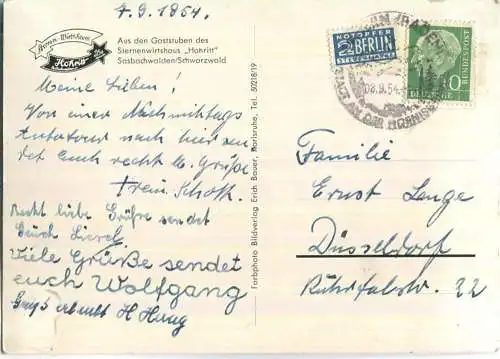 7.9.1954.
Sterne-Wirtshaus
Hohritt
Aus den Gaststuben des
Sternenwirtshaus "Hohritt"
Sasbachwalden/Schwarzwald
Meine Lieben!
Von einer Nachmittags
Autotour nach hier sen
det Euch recht hl. Grüße
Schoth.
Recht liebe Grüße sendet
Euch Liesel
Viele Grüße sendet
euch Wolfgang
Gruß erlaubt H Haug
Farbphoto Bildverlag Erich Bauer, Karlsruhe, Tel. 50218/19
NOTOPFER
2 BERLIN
STEUERMARKE
08.9.54
STADT AN DER HORNIS
DEUTSCHE BUNDESPOST
10
Familie
Ernst Lange
Düsseldorf
Ruhrtalstr. 22